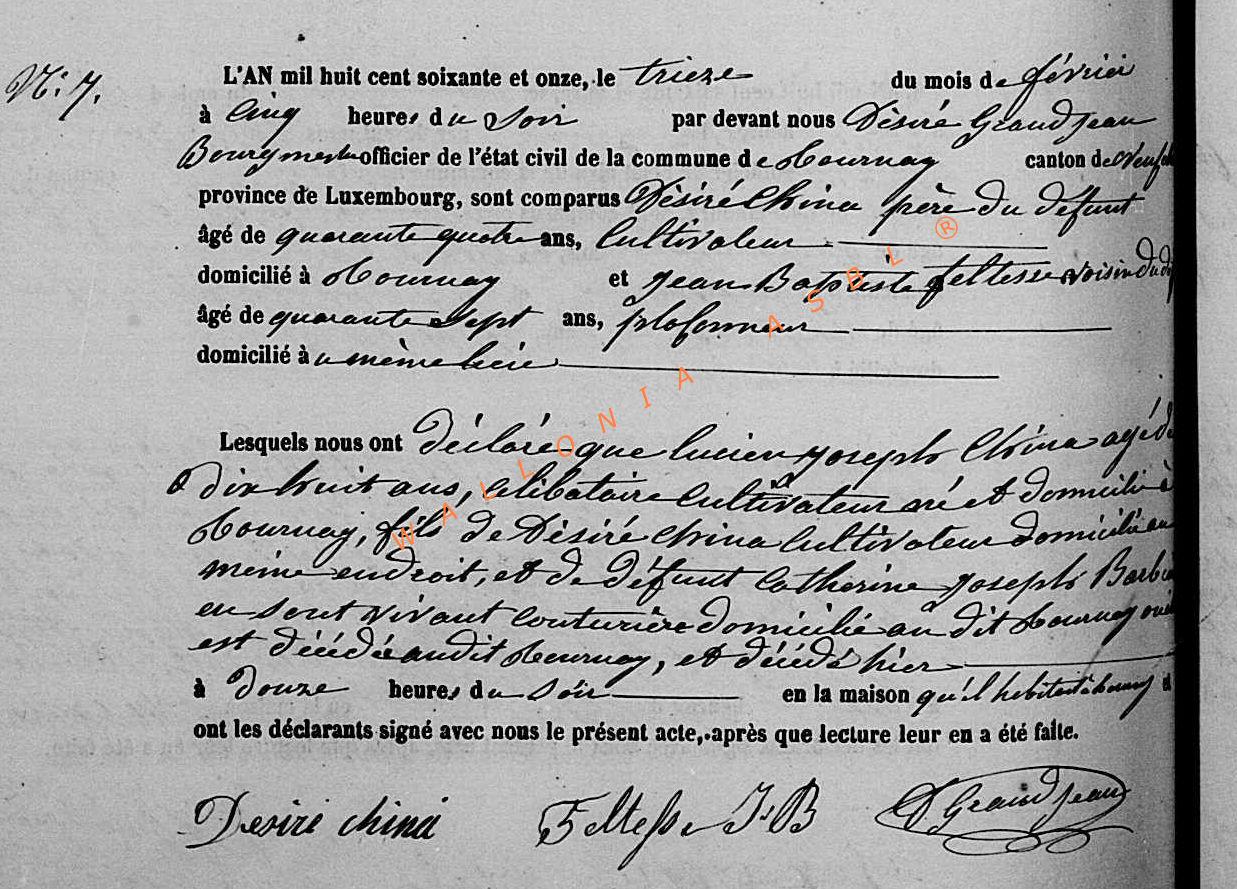 N: 7.
L'AN mil huit cent soixante et onze, le trieze du mois de février
à cinq heures du soir par devant nous Désiré Grandjean
Bourgmestre officier de l'état civil de la commune de Tournay canton de Neufch
province de Luxembourg, sont comparus Désiré China père du défunt
âgé de quarante quatre ans, Cultivateur
domicilié à Tournay et Jean Baptiste feltesse voisin du d
âgé de quarante sept ans, plafonneur
domicilié au même lieu
Lesquels nous ont déclaré que lucien joseph China agé de
dix huit ans, célibataire cultivateur né et domicilié à
Tournay, fils de Désiré China Cultivateur domicilié au
même endroit, et de défunt Catherine joseph Barbie
en sont vivant couturière domicilié au dit Tournay où
est décédée audit Tournay, et décédé hier
à douze heures du soir en la maison qu'il hebitait à Tournay
ont les déclarants signé avec nous le présent acte, après que lecture leur en a été faite.
Desiré china Feltesse J. B D Grandjean
WALLONIA ASBL ®